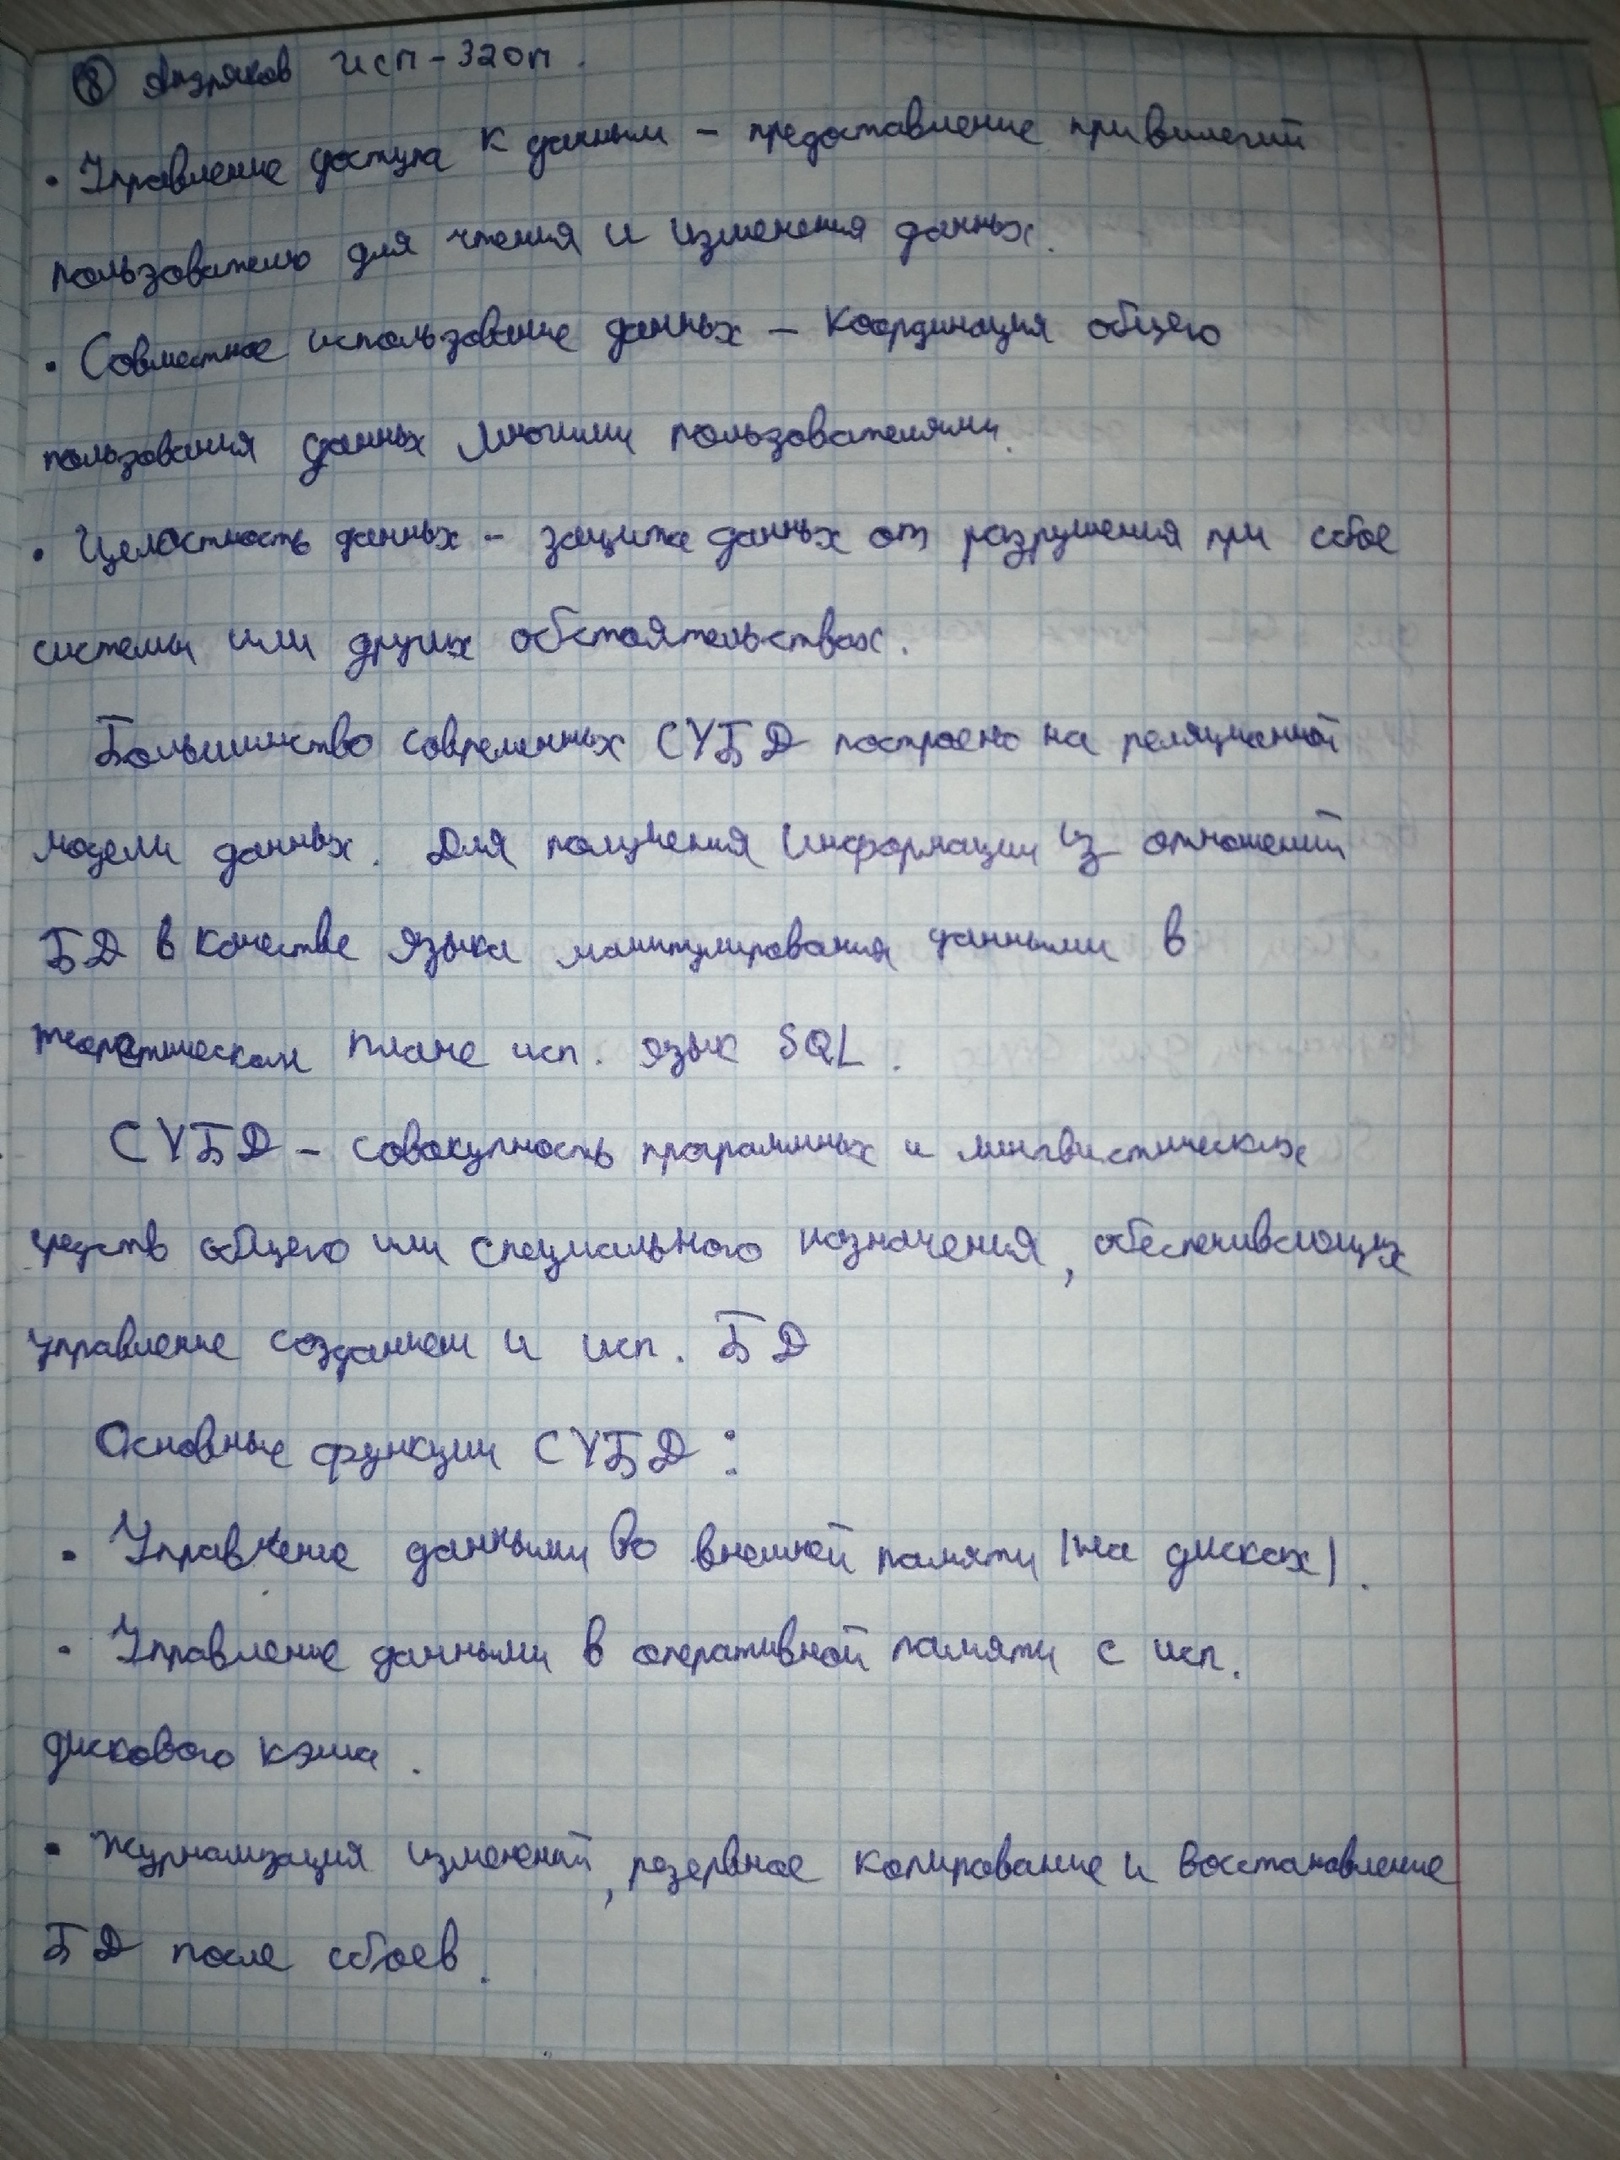 ⑧ Андряков ИСП-320П.
• Управление доступа к данным – предоставление привилегий
пользователю для чтения и изменения данных.
• Совместное использование данных – координация общего
пользования данных многими пользователями.
• Целостность данных – защита данных от разрушения при сбое
системы или других обстоятельствах.
Большинство современных СУБД построено на реляционной
модели данных. Для получения информации из отношений
БД в качестве языка манипулирования данными в
теоретическом плане исп. язык SQL.
СУБД – совокупность программных и лингвистических
средств общего или специального назначения, обеспечивающих
управление созданием и исп. БД
Основные функции СУБД:
• Управление данными во внешней памяти (на дисках).
• Управление данными в оперативной памяти с исп.
дискового кэша.
• Журнализация изменений, резервное копирование и восстановление
БД после сбоев.